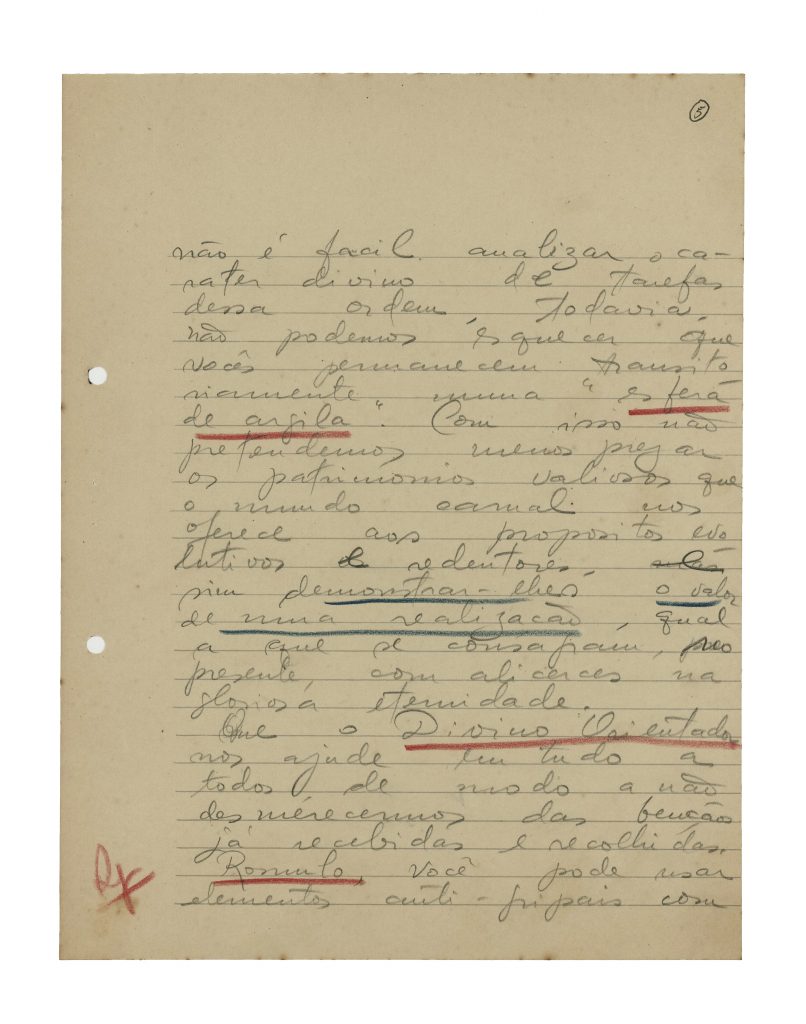 5
não é facil analizar o ca-
rater divino de tarefas
dessa ordem, todavia,
não podemos esquecer que
vocês permanecem transito
riamente numa "esfera
de argila". Com isso não
pretendemos menosprezar
os patrimonios valiosos que
o mundo carnal nos
oferece aos propositos evo
lutivos e redentores, mas
sim demonstrar-lhes o valor
de uma realização, qual
a que se consagram, no
presente, com alicerces na
gloriosa eternidade.
Que o Divino Orientador
nos ajude em tudo a
todos de modo a não
desmerecermos das benção
já recebidas e recolhidas.
Romulo, você pode usar
elementos anti-gripais com